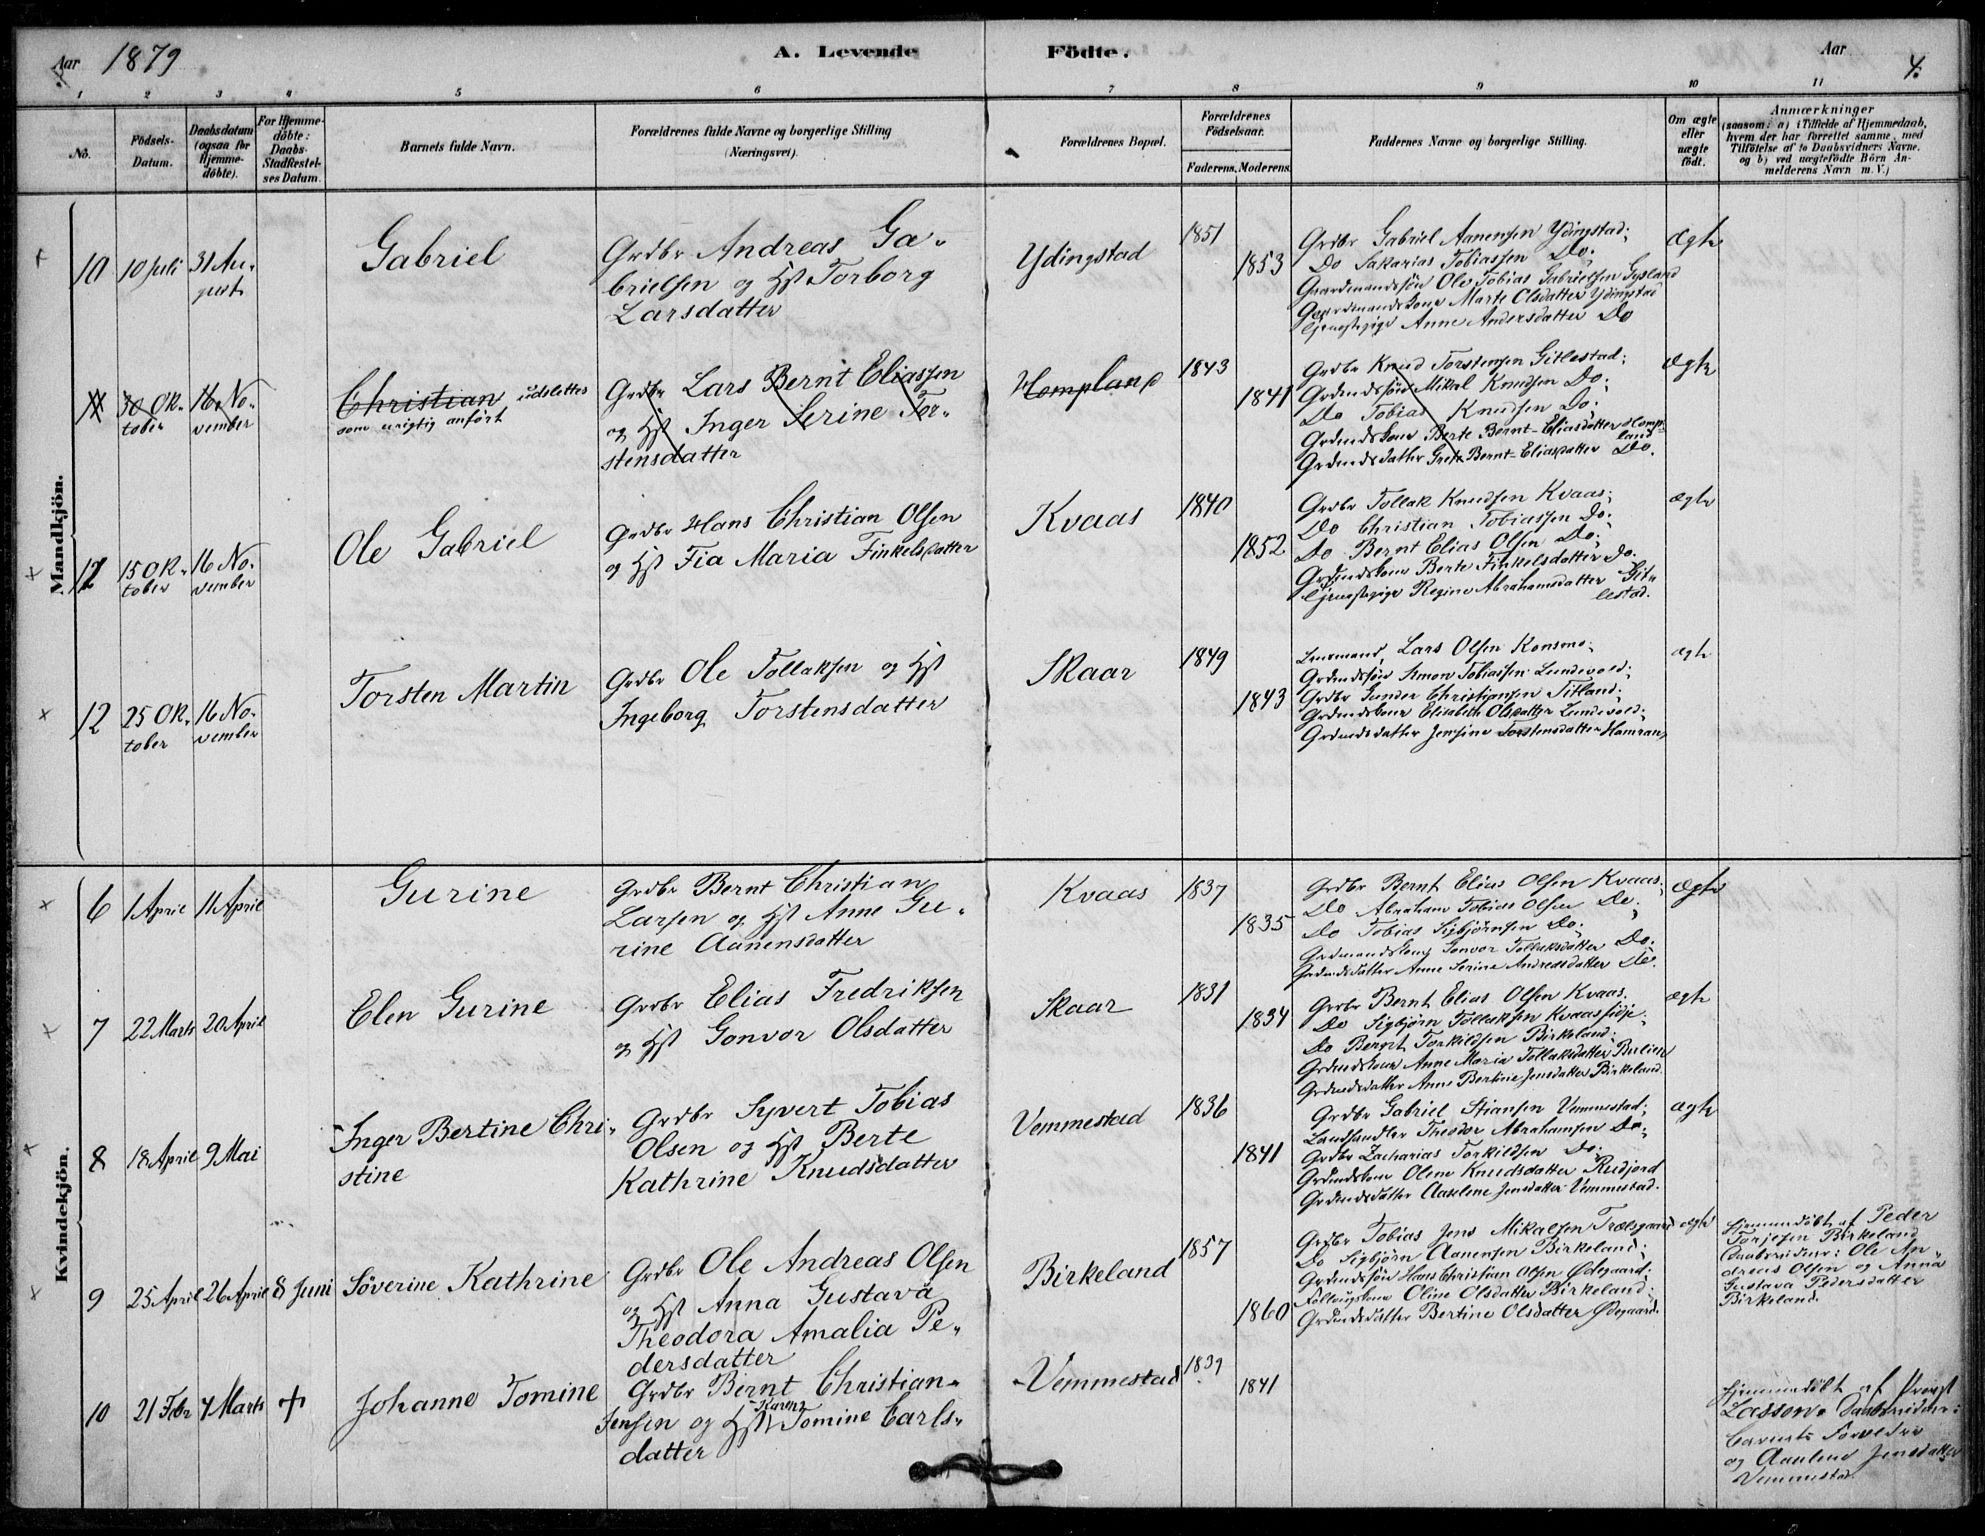 Aar 1879 A. Levende Födte. Aar 4.
1 2 3 4 5 6 7 8 9 10 11
No.
Födsels-Datum.
Daabsdatum (ogsaa for Hjemme-döbte).
For Hjemme-döbte: Daabs-Stadfæstel-ses Datum.
Barnets fulde Navn.
Forældrenes fulde Navne og borgerlige Stilling (Næringsvei).
Forældrenes Bopæl.
Forældrenes Födselsaar.
Faderens. Moderens.
Faddernes Navne og borgerlige Stilling.
Om ægte eller uægte födt.
Anmærkninger
(saasom: a) i Tilfælde af Hjemmedaab,
hvem der har forrettet samme, med
Tilföielse af to Daabsvidners Navne,
og b) ved uægtefödte Börn An-
melderens Navn m. V.)
Mandkjön.
10 10 Juli 31 Au-
gust
Gabriel
Grdbr Andreas Ga-
brielsen og Hst Torborg
Larsdatter
Ydingstad
1851
1853
Grdbr Gabriel Aanensen Ydingstad;
Do Sakarias Tobiassen Do;
Gaardmandssön Ole Tobias Gabrielsen Gysland
Gaardmandskone Marte Olsdatter Ydingstad
Tjenestepige Anne Andersdatter Do
Ægte
11 30 Ok-
tober
16 No-
vember
Christian udslettes
som urigtig anfört
Grdbr Lars Bernt Eliassen
og Hst Inger Serine Tor-
stensdatter
Hompland
1843
1841
Grdbr Knud Torstensen Gitlestad;
Grdmdssön Mikal Knudsen Do;
Do Tobias Knudsen Do;
Grdmdskone Berte Bernt-Eliasdatter Homp-
land
Grdmdsdatter Grete Bernt-Eliasdatter Do.
Ægte
12 15 Ok-
tober
16 No-
vember
Ole Gabriel
Grdbr Hans Christian Olsen
og Hst Fia Maria Finkelsdatter
Kvaas
1840
1852
Grdbr Tollak Knudsen Kvaas;
Do Christian Tobiassen Do;
Do Bernt Elias Olsen Do;
Grdmdskone Berte Finkelsdatter Do.
Tjenestepige Regine Abrahamsdatter Git-
lestad.
ægte
12 25 Ok-
tober
16 No-
vember
Torsten Martin
Grdbr Ole Tollaksen og Hst
Ingeborg Torstensdatter
Skaar
1849
1843
Lensmand Lars Olsen Konsmo;
Grdmdssön Simon Tobiassen Lundevold;
Grdbr Gunder Christiansen Titland;
Grdmdskone Elisabeth Olsdatter Lundevold;
Grdmdsdatter Jensine Torstensdatter Hamran
ægte
Kvindekjön.
6 1 April 11 April
Gurine
Grdbr Bernt Christian
Larsen og Hst Anne Gu-
rine Aanensdatter
Kvaas
1837
1835
Grdbr Bernt Elias Olsen Kvaas;
Do Abraham Tobias Olsen Do;
Do Tobias Sigbjörnsen Do;
Grdmandskone Gonvor Tollaksdatter Do;
Grdmdsdatter Anne Serine Andreasdatter Do.
Ægte
7 22 Marts 20 April
Elen Gurine
Grdbr Elias Fredriksen
og Hst Gonvor Olsdatter
Skaar
1831
1834
Grdbr Bernt Elias Olsen Kvaas.
Do Sigbjörn Tollaksen Kvaassidje;
Do Bernt Torkildsen Birkeland;
Grdmdskone Anne Maria Tollaksdatter
Grdmdsdatter Anne Bertine Jensdatter Birkeland.
ægte
8 18 April 9 Mai
Inger Bertine Chri-
stine
Grdbr Syvert Tobias
Olsen og Hst Berte
Kathrine Knudsdatter
Vemmestad
1836
1841
Grdbr Gabriel Stiansen Vemmestad;
Landhandler Theodor Abrahamsen Do;
Grdbr Zacharias Torkildsen Do;
Grdmdskone Olene Knudsdatter Rudjord
Grdmdsdatter Aaselene Jensdatter Vemmestad.
ægte
9 25 April 26 April 8 Juni
Söverine Kathrine
Grdbr Ole Andreas Olsen
og Hst Anna Gustava
Theodora Amalia Pe-
dersdatter
Birkeland
1857
1860
Grdbr Tobias Jens Mikalsen Trælsgaard
Do Sigbjörn Aanensen Birkeland;
Grdmdssön Hans Christian Olsen Ødegaard;
Oline Olsdatter Birkeland;
Grdmdsdatter Bertine Olsdatter Ødegaard.
ægte
Hjemmedöbt af Peder
Torjesen Birkeland
Daabsvidner: Ole An-
dreas Olsen og Anna
Gustava Pedersdatter
Birkeland.
10 21 Febr 7 Marts +
Johanne Tomine
Grdbr Bernt Christian
Jensen og Hst Karen Tomine Carls-
datter
Vemmestad
1839
1841
Hjemmedöbt af Provst
Lassen. Daabsvidner:
Barnets Forældre
og Aanlene Jensdatter
Vemmestad